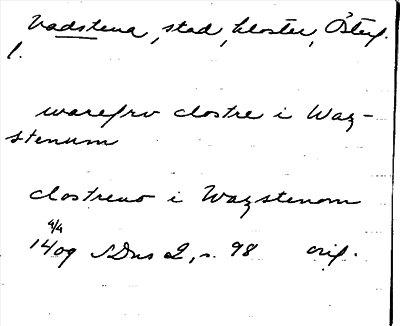 Vadstena, stad, kloster, Österg.
l.
warefrv clostre i Waz-
stenum
clostreno i Wazstenom
4/4
1409 SDns 2, s. 98 orig.